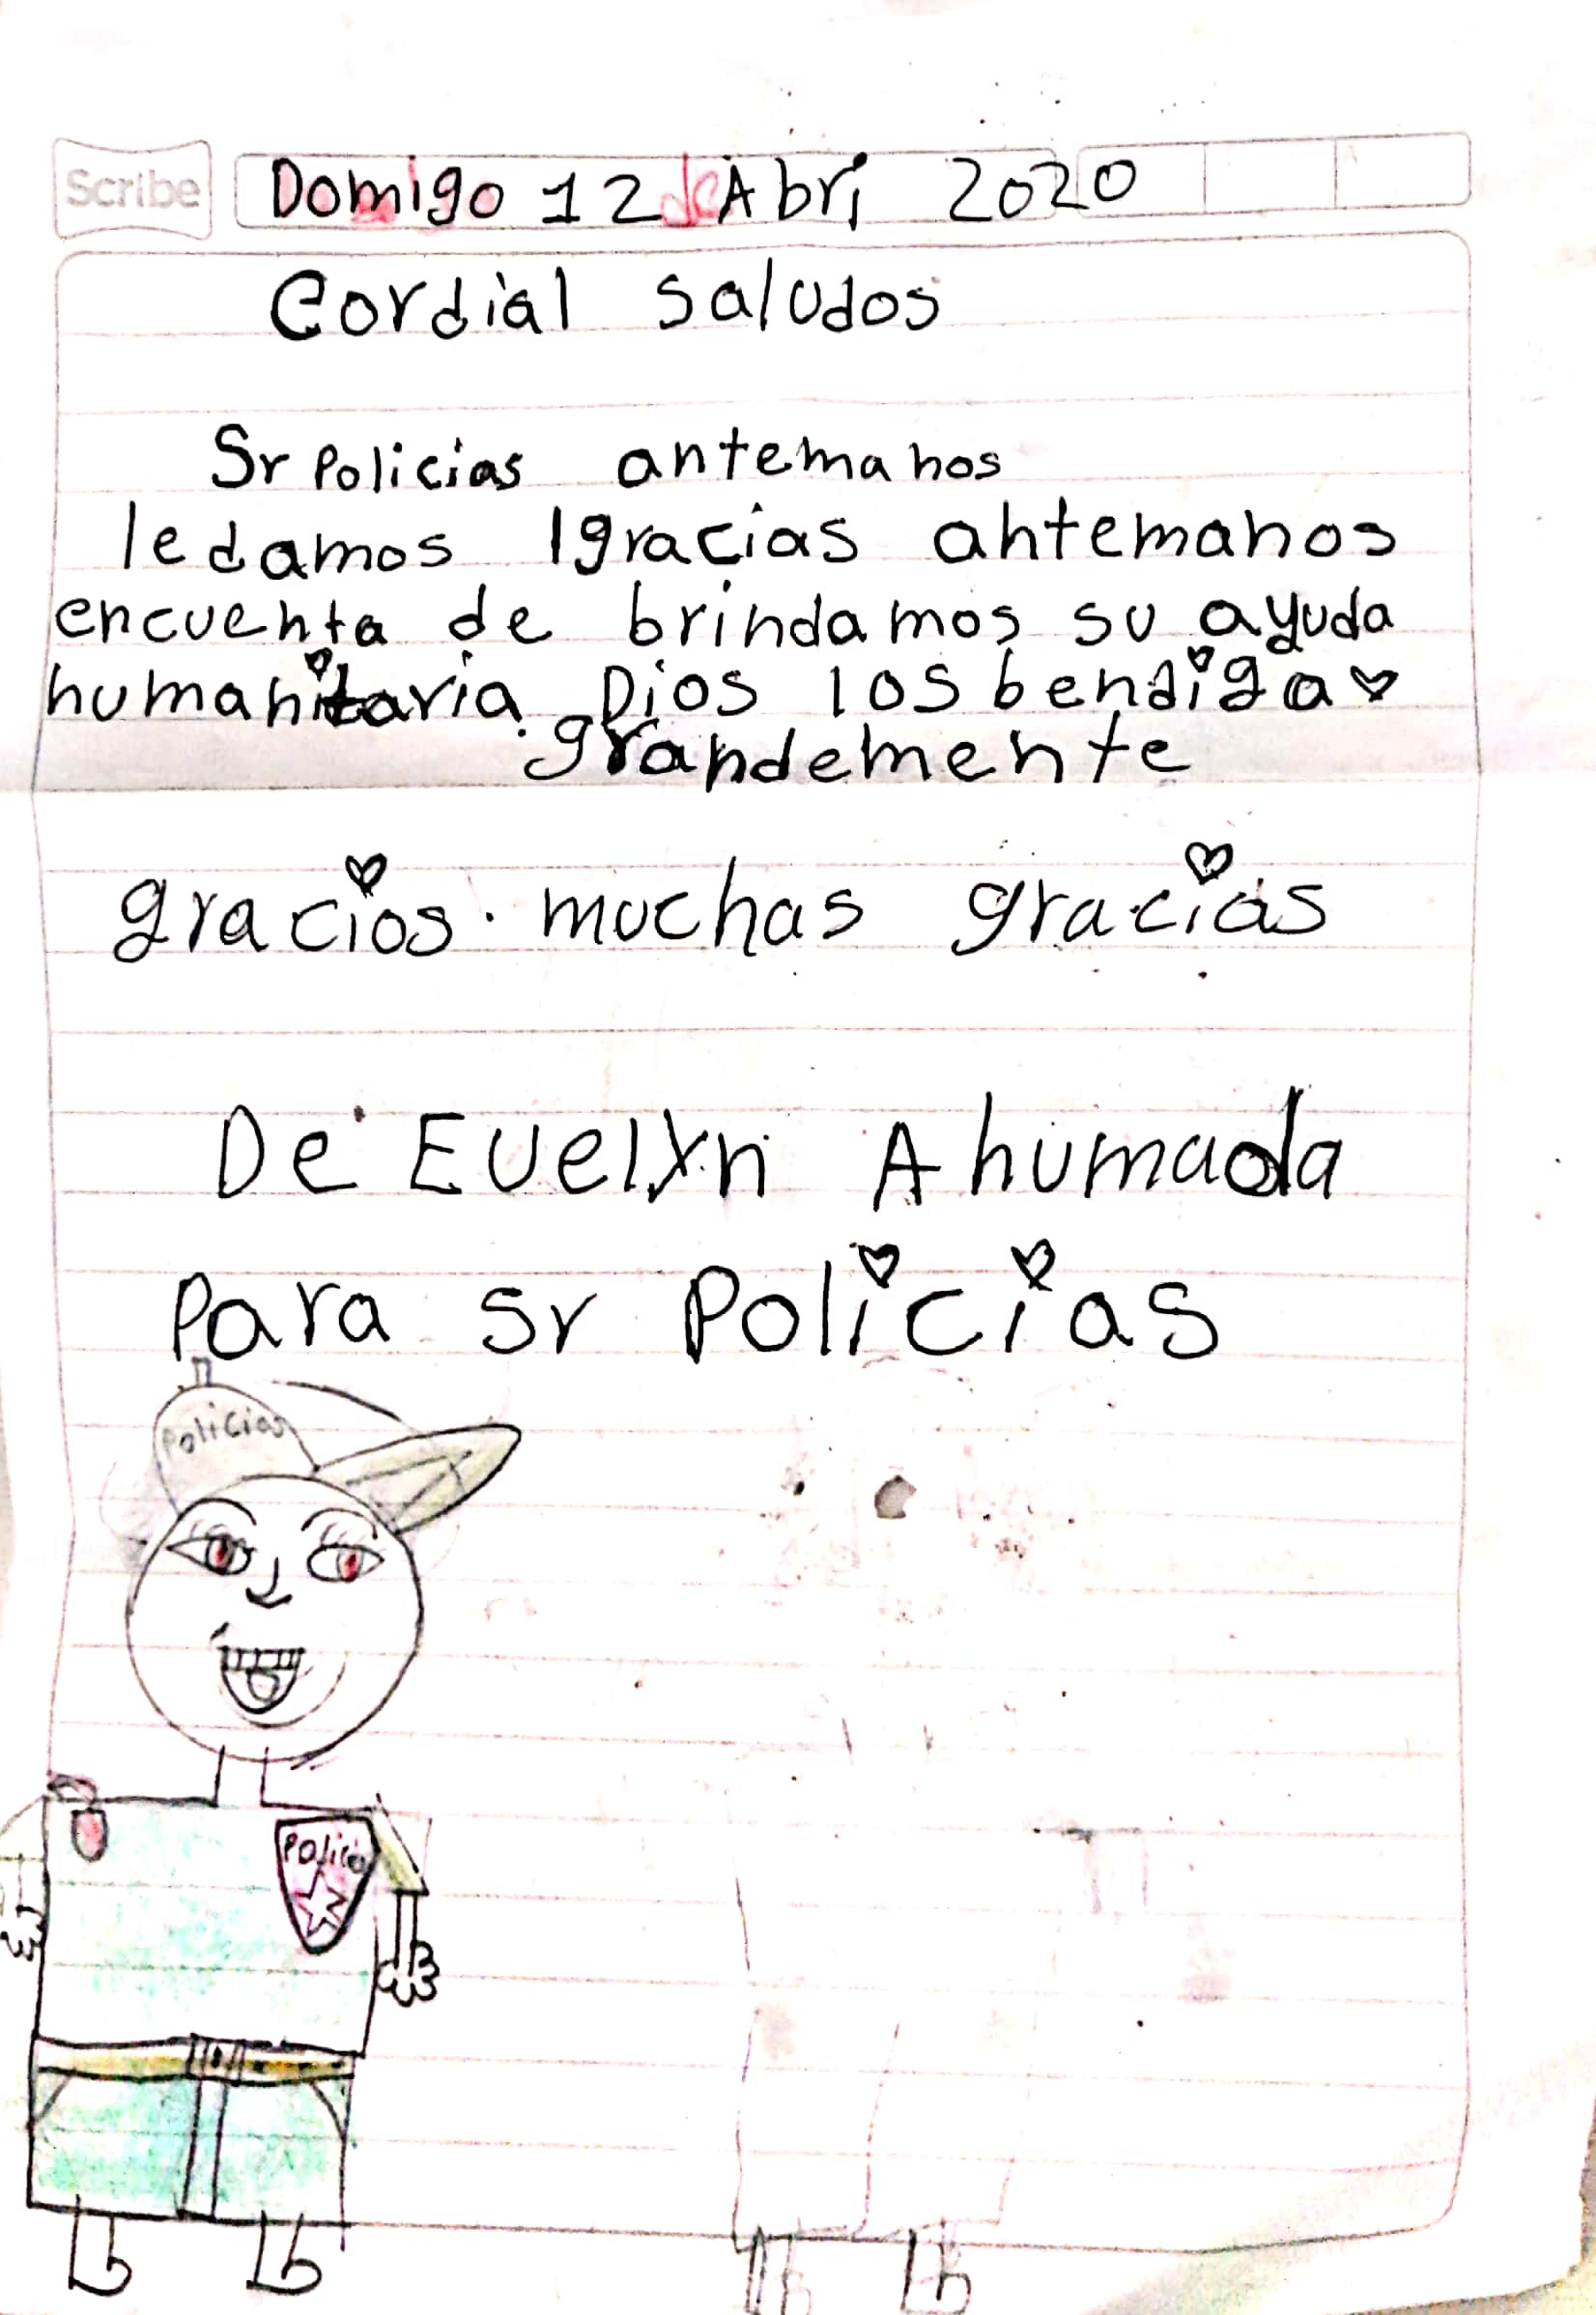 Scribe
Domigo 12 de Abri 2020
Cordial saludos
Sr Policias antemanos
le damos lgracias antemanos
encuenta de brindamos su ayuda
humanitaria. Dios los bendiga
grandemente
gracios. muchas gracias
De Evelyn Ahumada
Para sr Policias
Policias
Policia